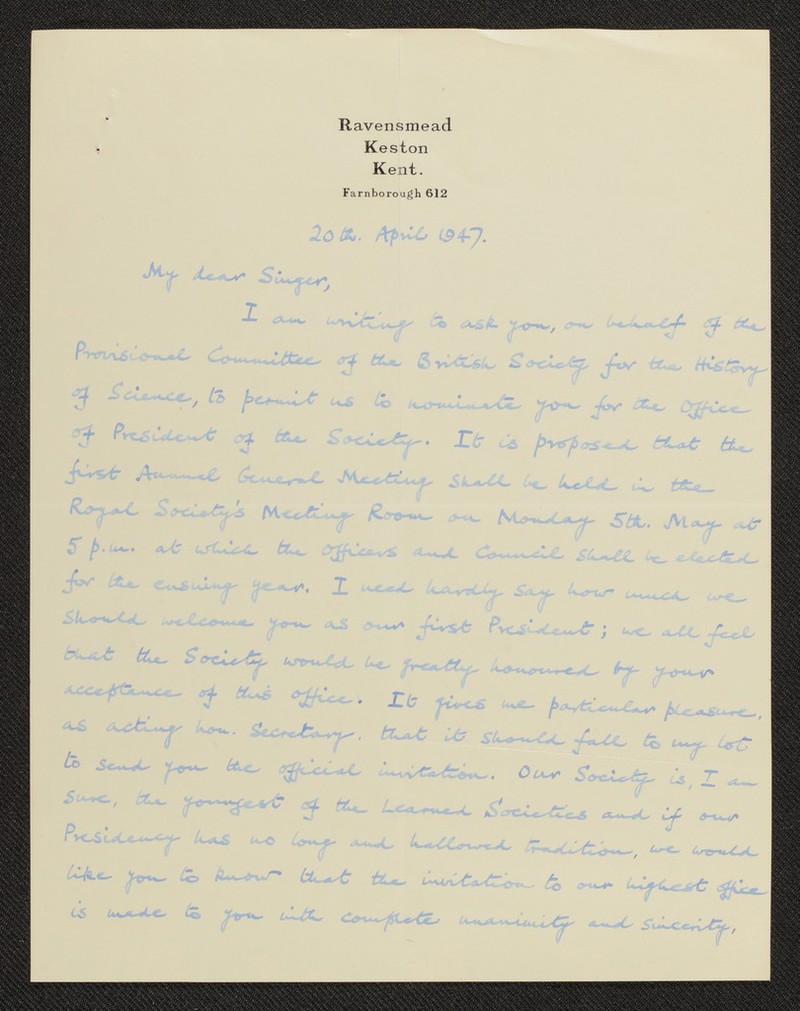 Ravensmead
Keston
Kent.
Farnborough 612
20th. April 1947.
My dear Singer,
I am writing to ask you, on behalf of the
Provisional Committee of the British Society for the History
of Science, to permit us to nominate you for the Office
of President of the Society. It is proposed that the
first Annual General Meeting shall be held in the
Royal Society's Meeting Room on Monday 5th. May at
5 p.m. at which the Officers and Council shall be elected
for the ensuing year. I need hardly say how much we
should welcome you as our first President; we all feel
that the Society would be greatly honoured by your
acceptance of this office. It gives me particular pleasure,
as acting hon. Secretary, that it should fall to my lot
to send you the official invitation. Our Society is, I am
sure, the youngest of the Learned Societies and if our
Presidency has no long and hallowed tradition, we would
like you to know that the invitation to our highest office
is made to you with complete unanimity and sincerity,